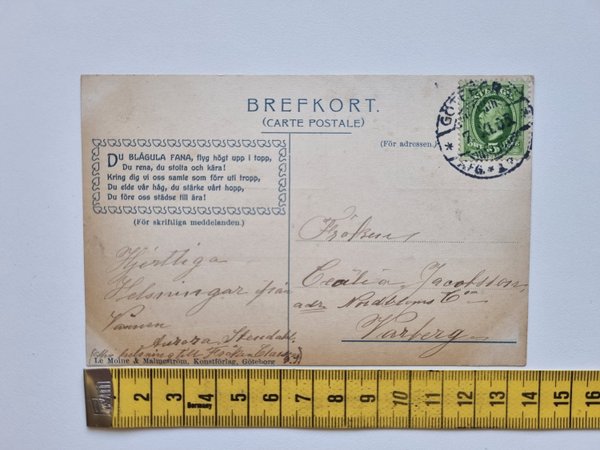 BREFKORT.
(CARTE POSTALE)
(För adressen.)
DU BLÅGULA FANA, flyg högt upp i topp,
Du rena, du stolta och kära!
Kring dig vi oss samle som förr uti tropp,
Du elde vår håg, du stärke vårt hopp,
Du före oss städse till ära!
(För skriftliga meddelanden.)
Hjertliga
Helsningar från
Vännen
Aurora Stendahl
helsning till
Le Moine & Malmeström, Konstförlag, Göteborg
Fröken
Cecilia Jacobsson
adr Nordströms Co
Varberg
2 3 4 5 6 7 8 9 10 11 12 13 14 15
Germany